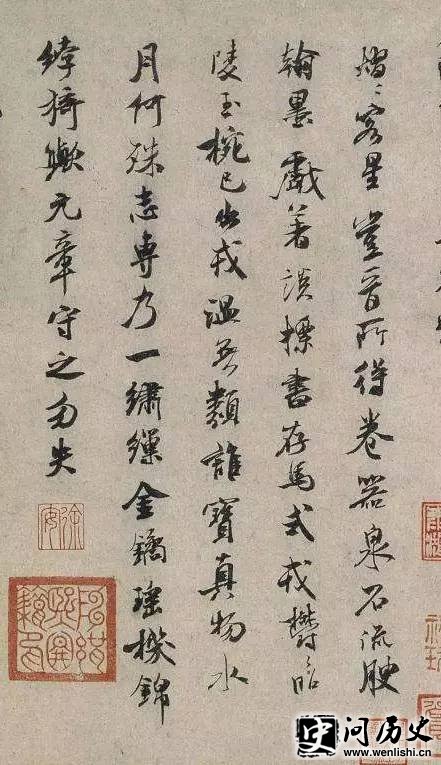 熠〻客星豈晉所得養器泉石流腴
翰墨戲著談標書存焉式欝昭
陵玉椀已出戎溫無類誰寶真物水
月何殊志專乃一繡繅金鐍瑤機錦
綍猗歟元章守之勿失
问历史
www.wenlishi.cn